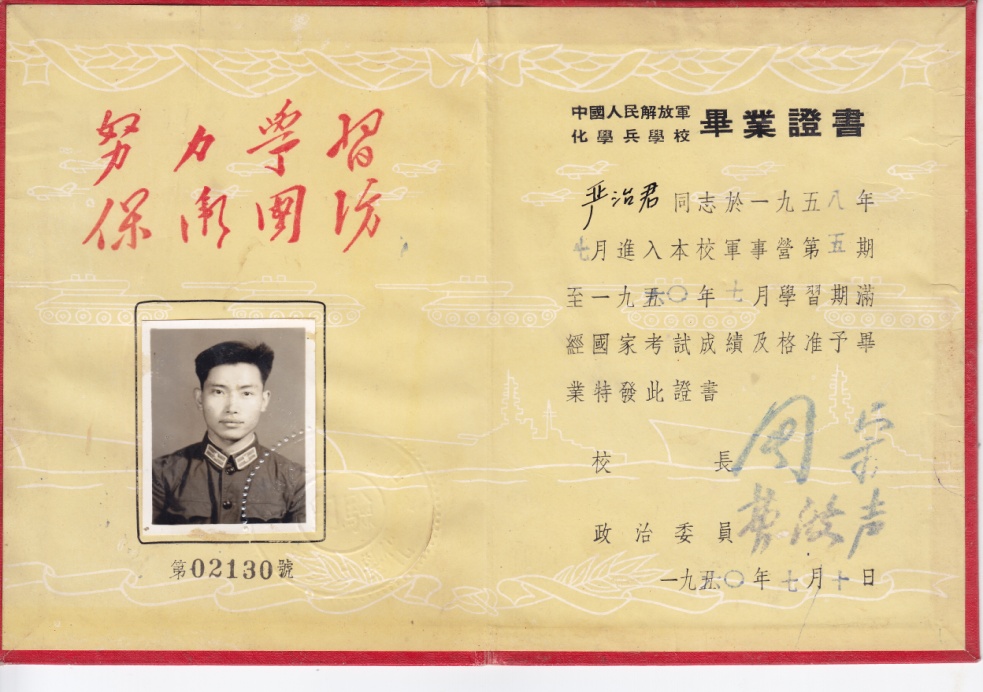 努力學習
保衛國防
第02130號
中國人民解放軍
化學兵學校
畢業證書
严治君同志於一九五八年
七月進入本校軍事營第五期
至一九六〇年七月學習期滿
經國家考試成績及格准予畢
業特發此證書
校長 周宗
政治委員
一九六〇年七月十日